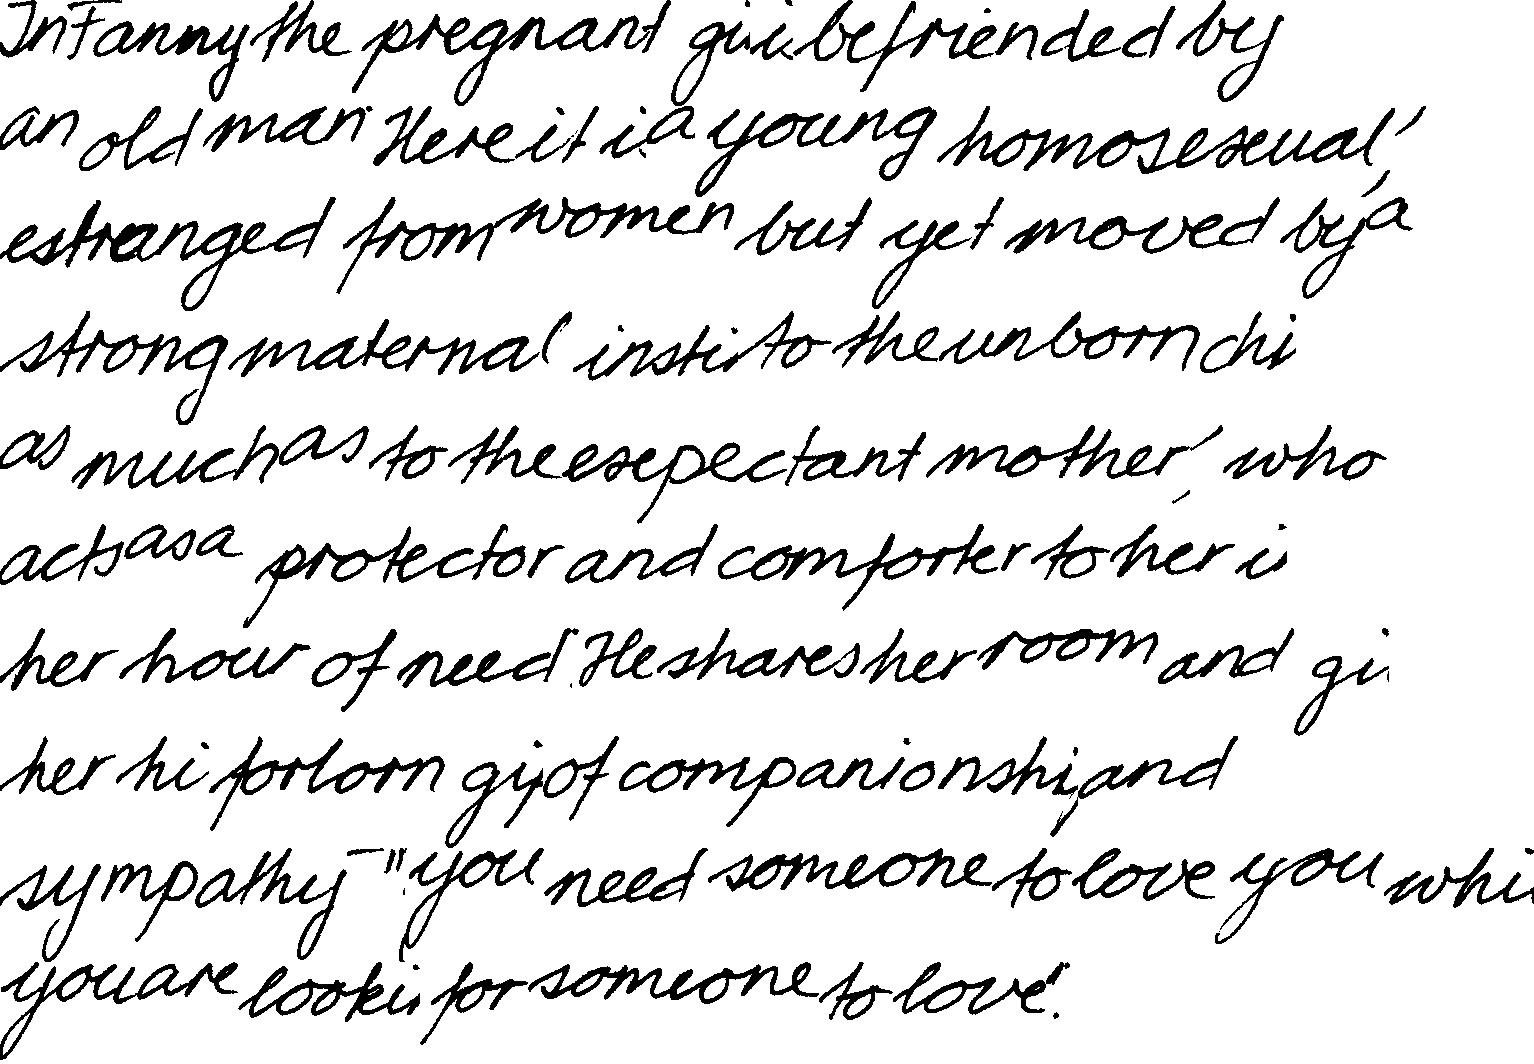 In Fanny the pregnant gi i befriended by
an old man. Here it i a young homosexual,
estranged from women but yet moved by a
strong maternal insti to the unborn chi
as much as to the expectant mother, who
acts as a protector and comforter to her i
her hour of need. He shares her room and gi
her hi forlorn gi of companionshi, and
sympathy - "you need someone to love you whi
you are looki for someone to love".